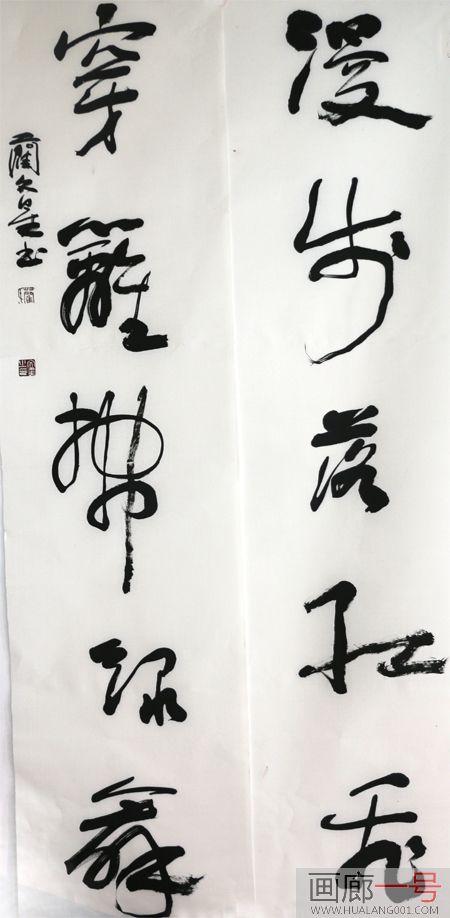 漫步落红飞
穿籬拂绿舞
画廊一号
WWW.HUALANG001.COM